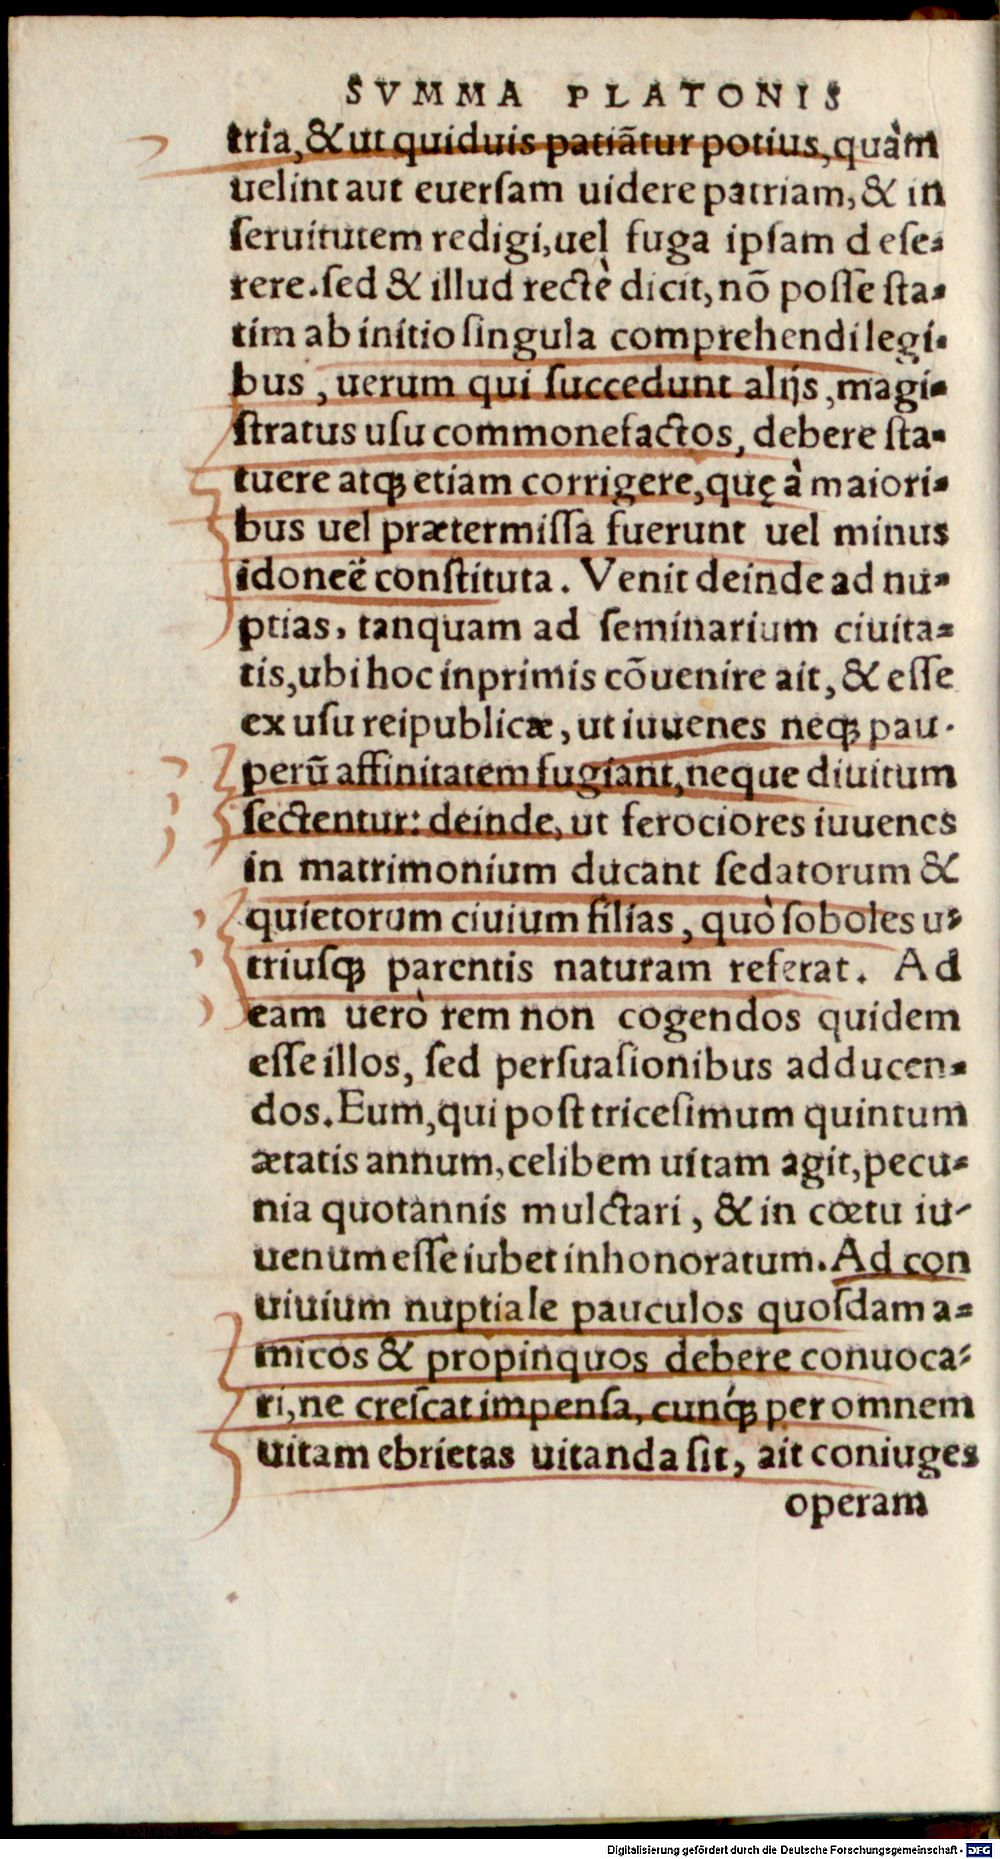 SVMMA PLATONIS
tria, & ut quiduis patiātur potius, quàm
uelint aut euersam uidere patriam, & in
ſeruitutem redigi, uel fuga ipſam deſe-
rere. ſed & illud rectè dicit, nō poſſe ſta-
tim ab initio ſingula comprehendi legi-
bus, uerum qui ſuccedunt alijs, magi-
ſtratus uſu commonefactos, debere ſta-
tuere atqꝫ etiam corrigere, quę à maiori-
bus uel prætermiſſa fuerunt uel minus
idoneè conſtituta. Venit deinde ad nu-
ptias, tanquam ad ſeminarium ciuita-
tis, ubi hoc inprimis cōuenire ait, & eſſe
ex uſu reipublicæ, ut iuuenes neqꝫ pau-
perū affinitatem fugiant, neque diuitum
ſectentur: deinde, ut ferociores iuuenes
in matrimonium ducant ſedatorum &
quietorum ciuium filias, quò ſoboles u-
triuſqꝫ parentis naturam referat. Ad
eam uerò rem non cogendos quidem
eſſe illos, ſed perſuaſionibus adducen-
dos. Eum, qui poſt triceſimum quintum
ætatis annum, celibem uitam agit, pecu-
nia quotannis mulctari, & in cœtu iu-
uenum eſſe iubet inhonoratum. Ad con
uiuium nuptiale pauculos quoſdam a-
micos & propinquos debere conuoca-
ri, ne creſcat impenſa, cunqꝫ per omnem
uitam ebrietas uitanda ſit, ait coniuges
operam
Digitalisierung gefördert durch die Deutsche Forschungsgemeinschaft - DFG